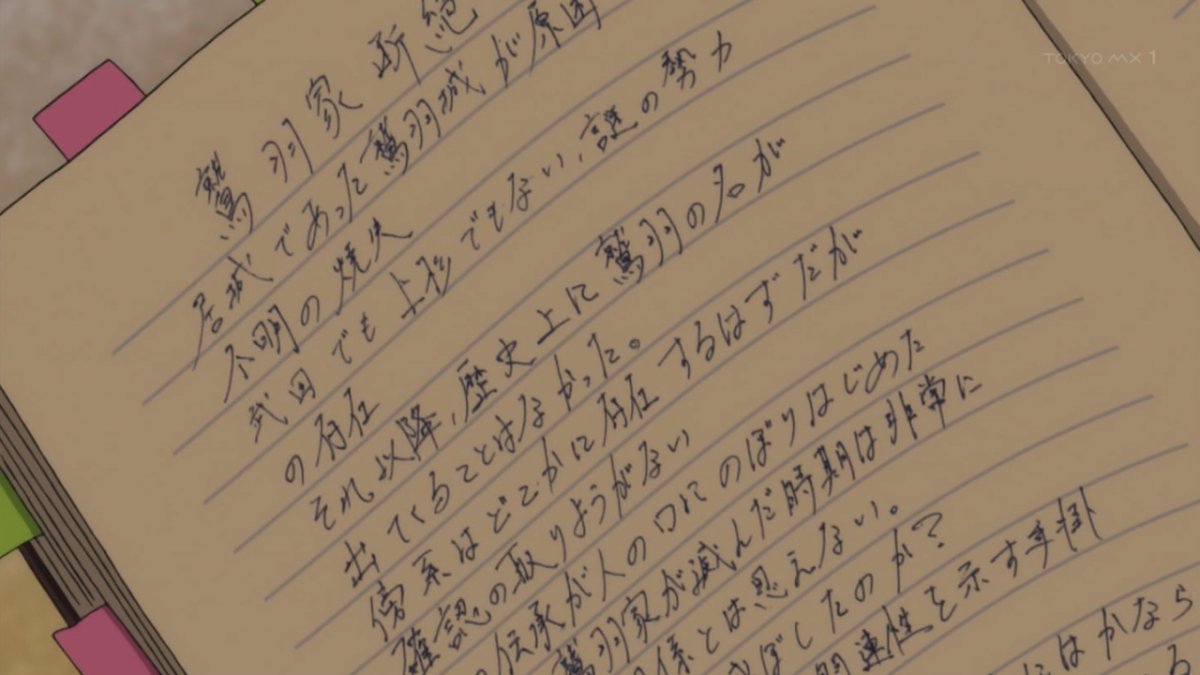 TOKYO MX 1
鷲羽家断絶
居城であった鷲羽城が原因
不明の焼失
武田でも上杉でもない、謎の勢力
の存在
それ以降、歴史上に鷲羽の名が
出てくることはなかった。
傍系はどこかに存在するはずだが
確認の取りようがない
伝承が人の口にのぼりはじめた
鷲羽家が滅んだ時期は非常に
係とは思えない。
ぼしたのか？
関連性を示す手掛
にはかなら